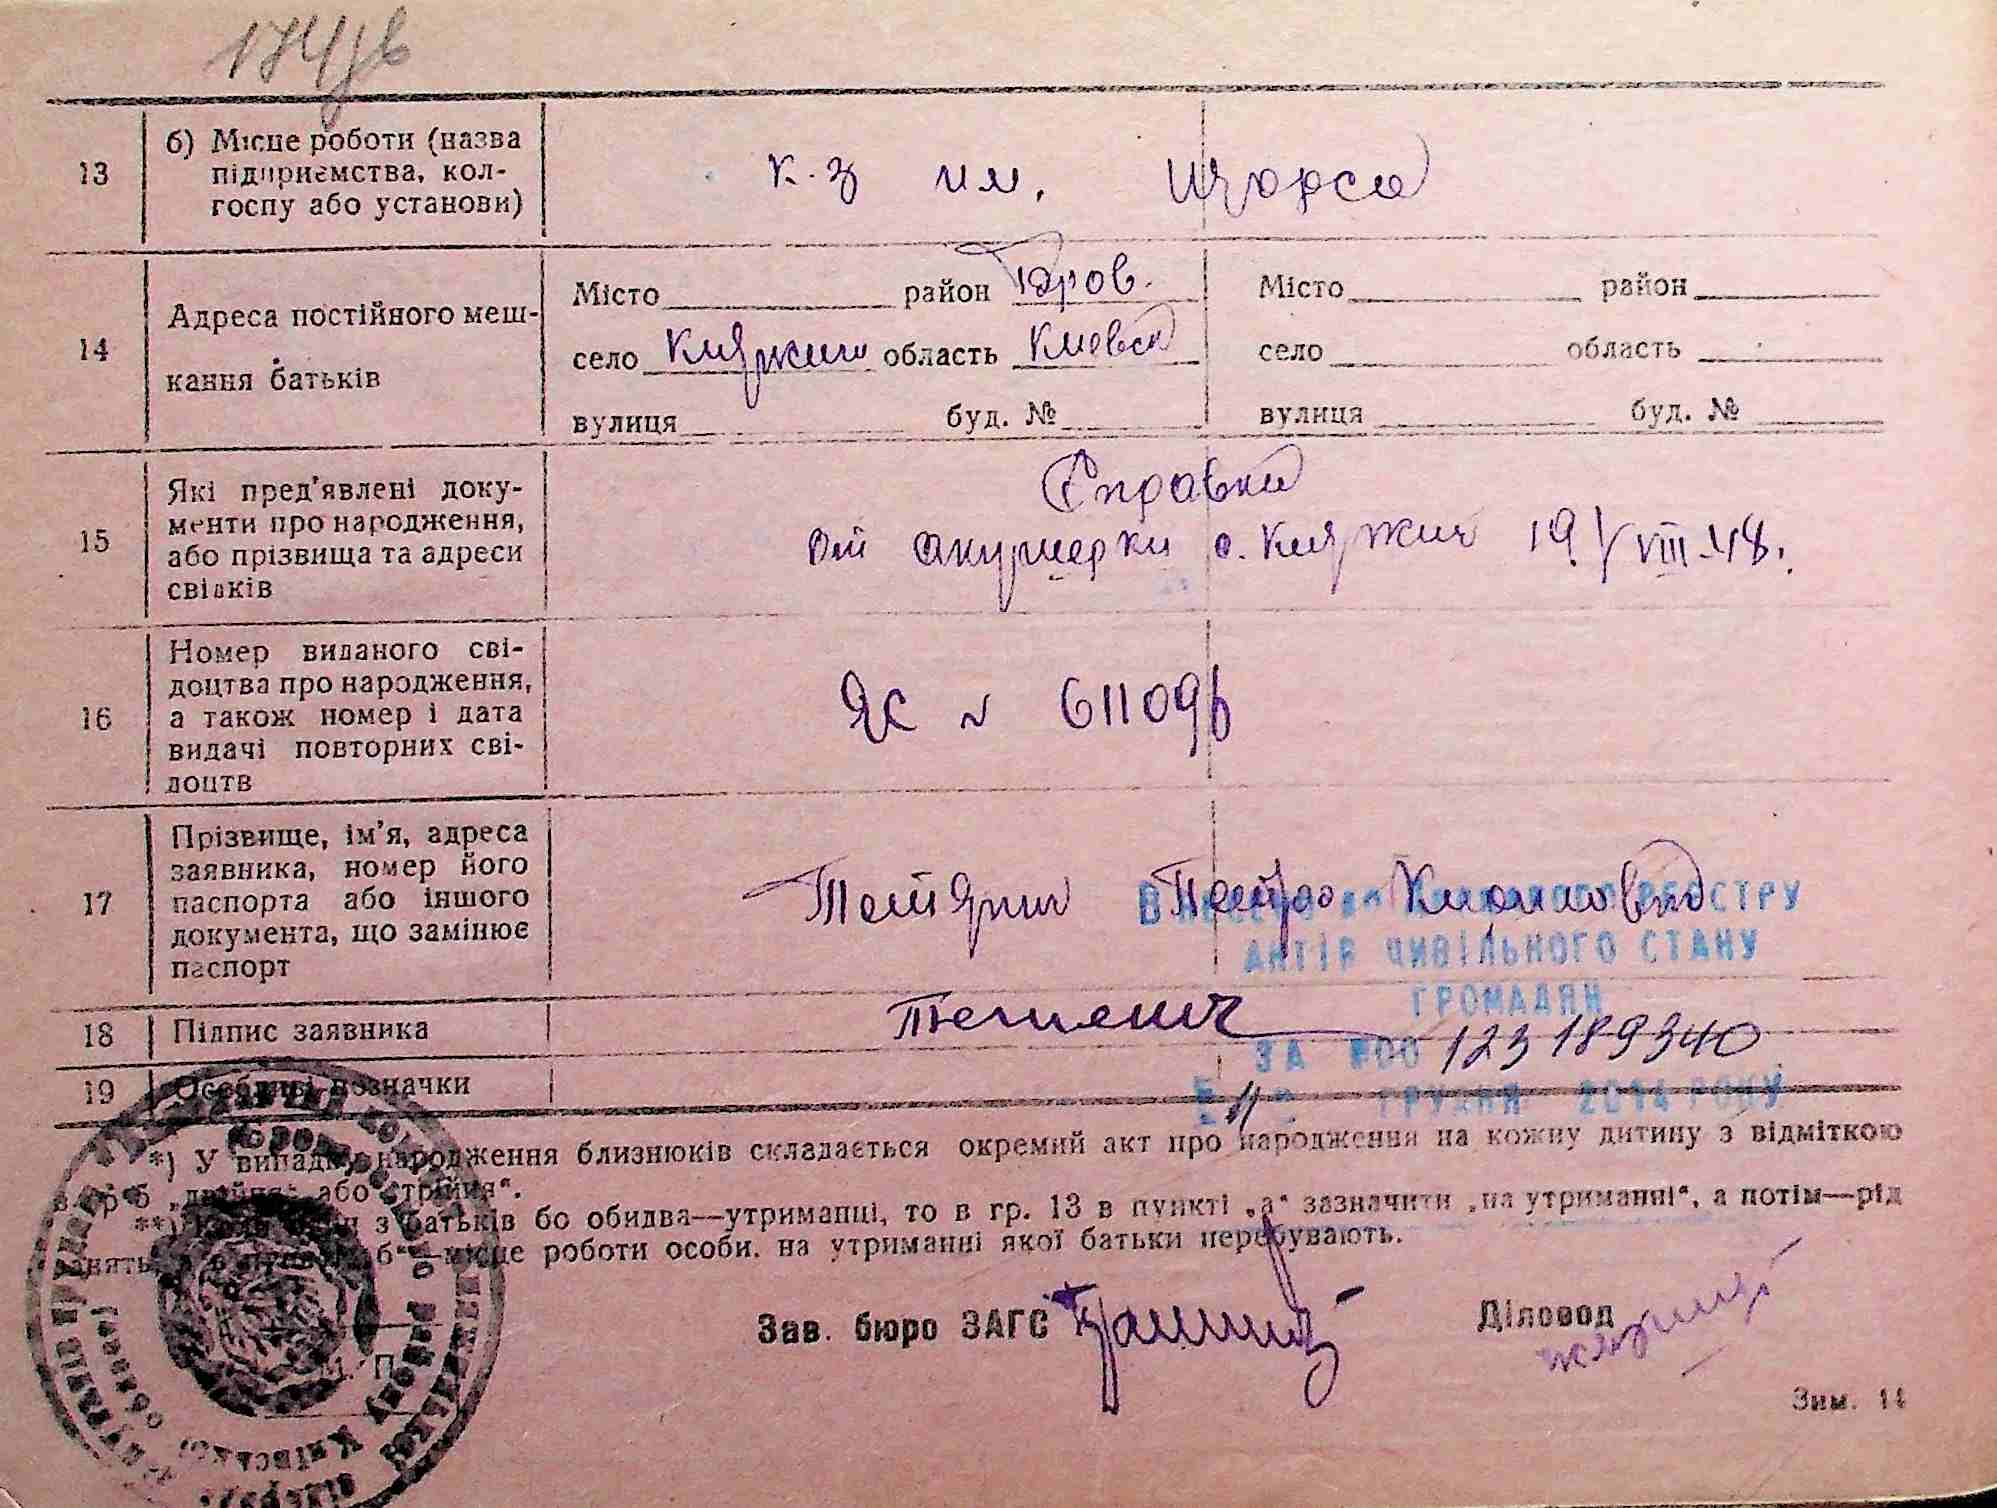 174
13
б) Місце роботи (назва
підприємства, кол-
госпу або установи)
к-з им. Щорса
14
Адреса постійного меш-
кання батьків
Місто район Бров.
село Княжичи область Киевск
вулиця буд. №
Місто район
село область
вулиця буд. №
15
Які пред'явлені доку-
менти про народження,
або прізвища та адреси
свідків
Справка
от акушерки с. Княжич 19/VIII-48.
16
Номер виданого сві-
доцтва про народження,
а також номер і дата
видачі повторних сві-
доцтв
ЯС № 611096
17
Прізвище, ім'я, адреса
заявника, номер його
паспорта або іншого
документа, що замінює
паспорт
РЕЄСТРУ
АКТІВ ЦИВІЛЬНОГО СТАНУ
ГРОМАДЯН
18
Підпис заявника
ЗА №00 123189340
19
Особливі позначки
ГРУДНЯ 2014 РОКУ
*) У випадку народження близнюків складається окремий акт про народження на кожну дитину з відміткою
в гр. 6 „двійня“ або „трійня“.
**) Коли один з батьків або обидва—утриманці, то в гр. 13 в пункті „а“ зазначити „на утриманні“, а потім—рід
занять, в пункті „б“—місце роботи особи, на утриманні якої батьки перебувають.
Зав. бюро ЗАГС
Діловод
М. П.
Зим. 14